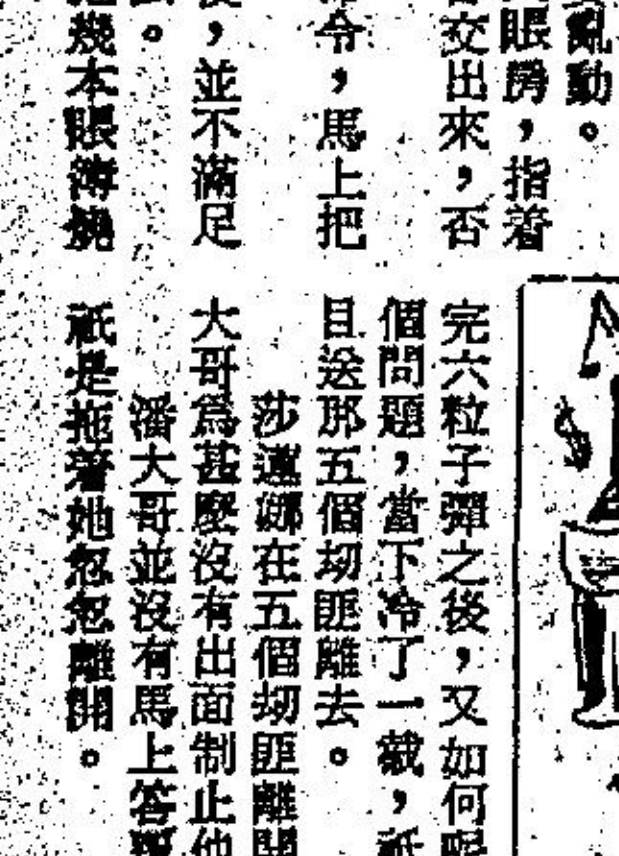 亂動。
賬房，指着
交出來，否
令，馬上把
，並不滿足
。
幾本賬簿燒
完六粒子彈之後，又如何呢
個問題，當下冷了一截，祇
目送那五個刼匪離去。
莎蓮娜在五個刼匪離開
大哥爲甚麼沒有出面制止他
潘大哥並沒有馬上答覆
祇是拖着她怱怱離開。